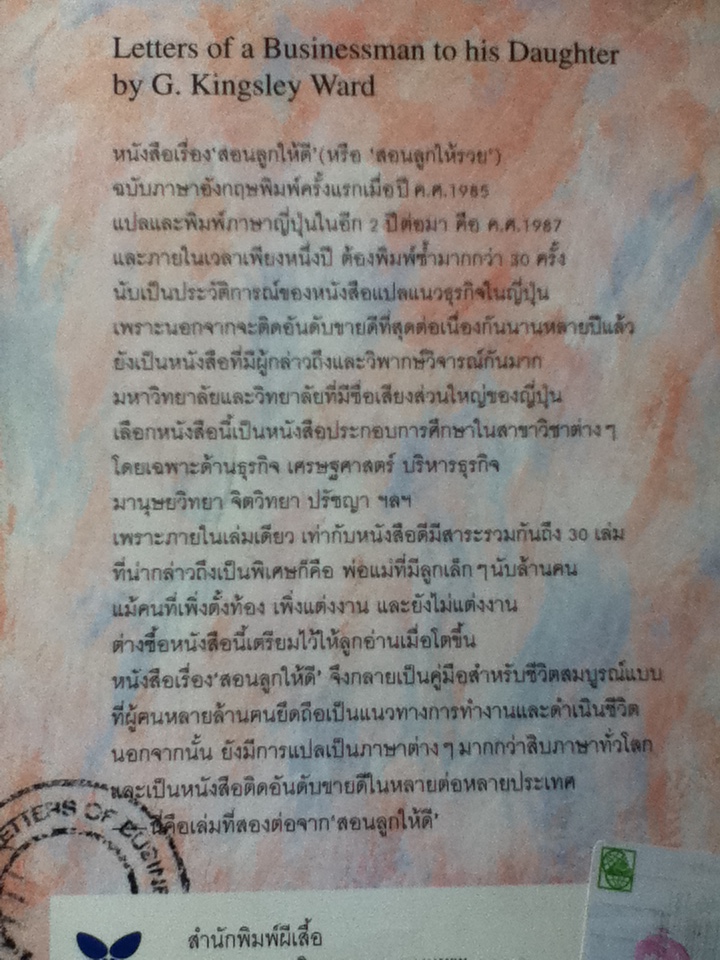 Letters of a Businessman to his Daughter
by G. Kingsley Ward
หนังสือเรื่อง‘สอนลูกให้ดี’(หรือ ‘สอนลูกให้รวย’)
ฉบับภาษาอังกฤษพิมพ์ครั้งแรกเมื่อปี ค.ศ.1985
แปลและพิมพ์ภาษาญี่ปุ่นในอีก 2 ปีต่อมา คือ ค.ศ.1987
และภายในเวลาเพียงหนึ่งปี ต้องพิมพ์ซ้ำมากกว่า 30 ครั้ง
นับเป็นประวัติการณ์ของหนังสือแปลแนวธุรกิจในญี่ปุ่น
เพราะนอกจากจะติดอันดับขายดีที่สุดต่อเนื่องกันนานหลายปีแล้ว
ยังเป็นหนังสือที่มีผู้กล่าวถึงและวิพากษ์วิจารณ์กันมาก
มหาวิทยาลัยและวิทยาลัยที่มีชื่อเสียงส่วนใหญ่ของญี่ปุ่น
เลือกหนังสือนี้เป็นหนังสือประกอบการศึกษาในสาขาวิชาต่างๆ
โดยเฉพาะด้านธุรกิจ เศรษฐศาสตร์ บริหารธุรกิจ
มานุษยวิทยา จิตวิทยา ปรัชญา ฯลฯ
เพราะภายในเล่มเดียว เท่ากับหนังสือดีมีสาระรวมกันถึง 30 เล่ม
ที่น่ากล่าวถึงเป็นพิเศษก็คือ พ่อแม่ที่มีลูกเล็กๆนับล้านคน
แม้คนที่เพิ่งตั้งท้อง เพิ่งแต่งงาน และยังไม่แต่งงาน
ต่างซื้อหนังสือนี้เตรียมไว้ให้ลูกอ่านเมื่อโตขึ้น
หนังสือเรื่อง‘สอนลูกให้ดี’ จึงกลายเป็นคู่มือสำหรับชีวิตสมบูรณ์แบบ
ที่ผู้คนหลายล้านคนยึดถือเป็นแนวทางการทำงานและดำเนินชีวิต
นอกจากนั้น ยังมีการแปลเป็นภาษาต่างๆมากกว่าสิบภาษาทั่วโลก
และเป็นหนังสือติดอันดับขายดีในหลายต่อหลายประเทศ
นี่คือเล่มที่สองต่อจาก‘สอนลูกให้ดี’
LETTERS OF BUSINE
สำนักพิมพ์ผีเสื้อ